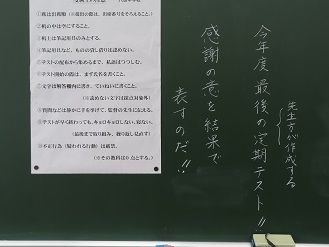 今年度最後の定期テスト!!
先生方が作成する
感謝の意を結果で
表すのだ!!
①席は出席順
②机の中は空にすること。
③机上は筆記用具のみとする。
④筆記用具など、ものの貸し借りは認めない。
⑤テストの配布から集めるまで、私語はつつしむ。
⑥テスト開始の際は、まず氏名を書くこと。
⑦文字は解答欄内に書き、ていねいに書くこと。
(読めない文字は採点対象外)
⑧質問などは静かに手を挙げて、監督の先生に伝える。
⑨テストが早く終わっても、キョロキョロしない、寝ない。
(最後まで取り組み、抜け出し見直す)
⑩不正行為(疑われる行動)は厳禁。
(※その教科は0点とする。)